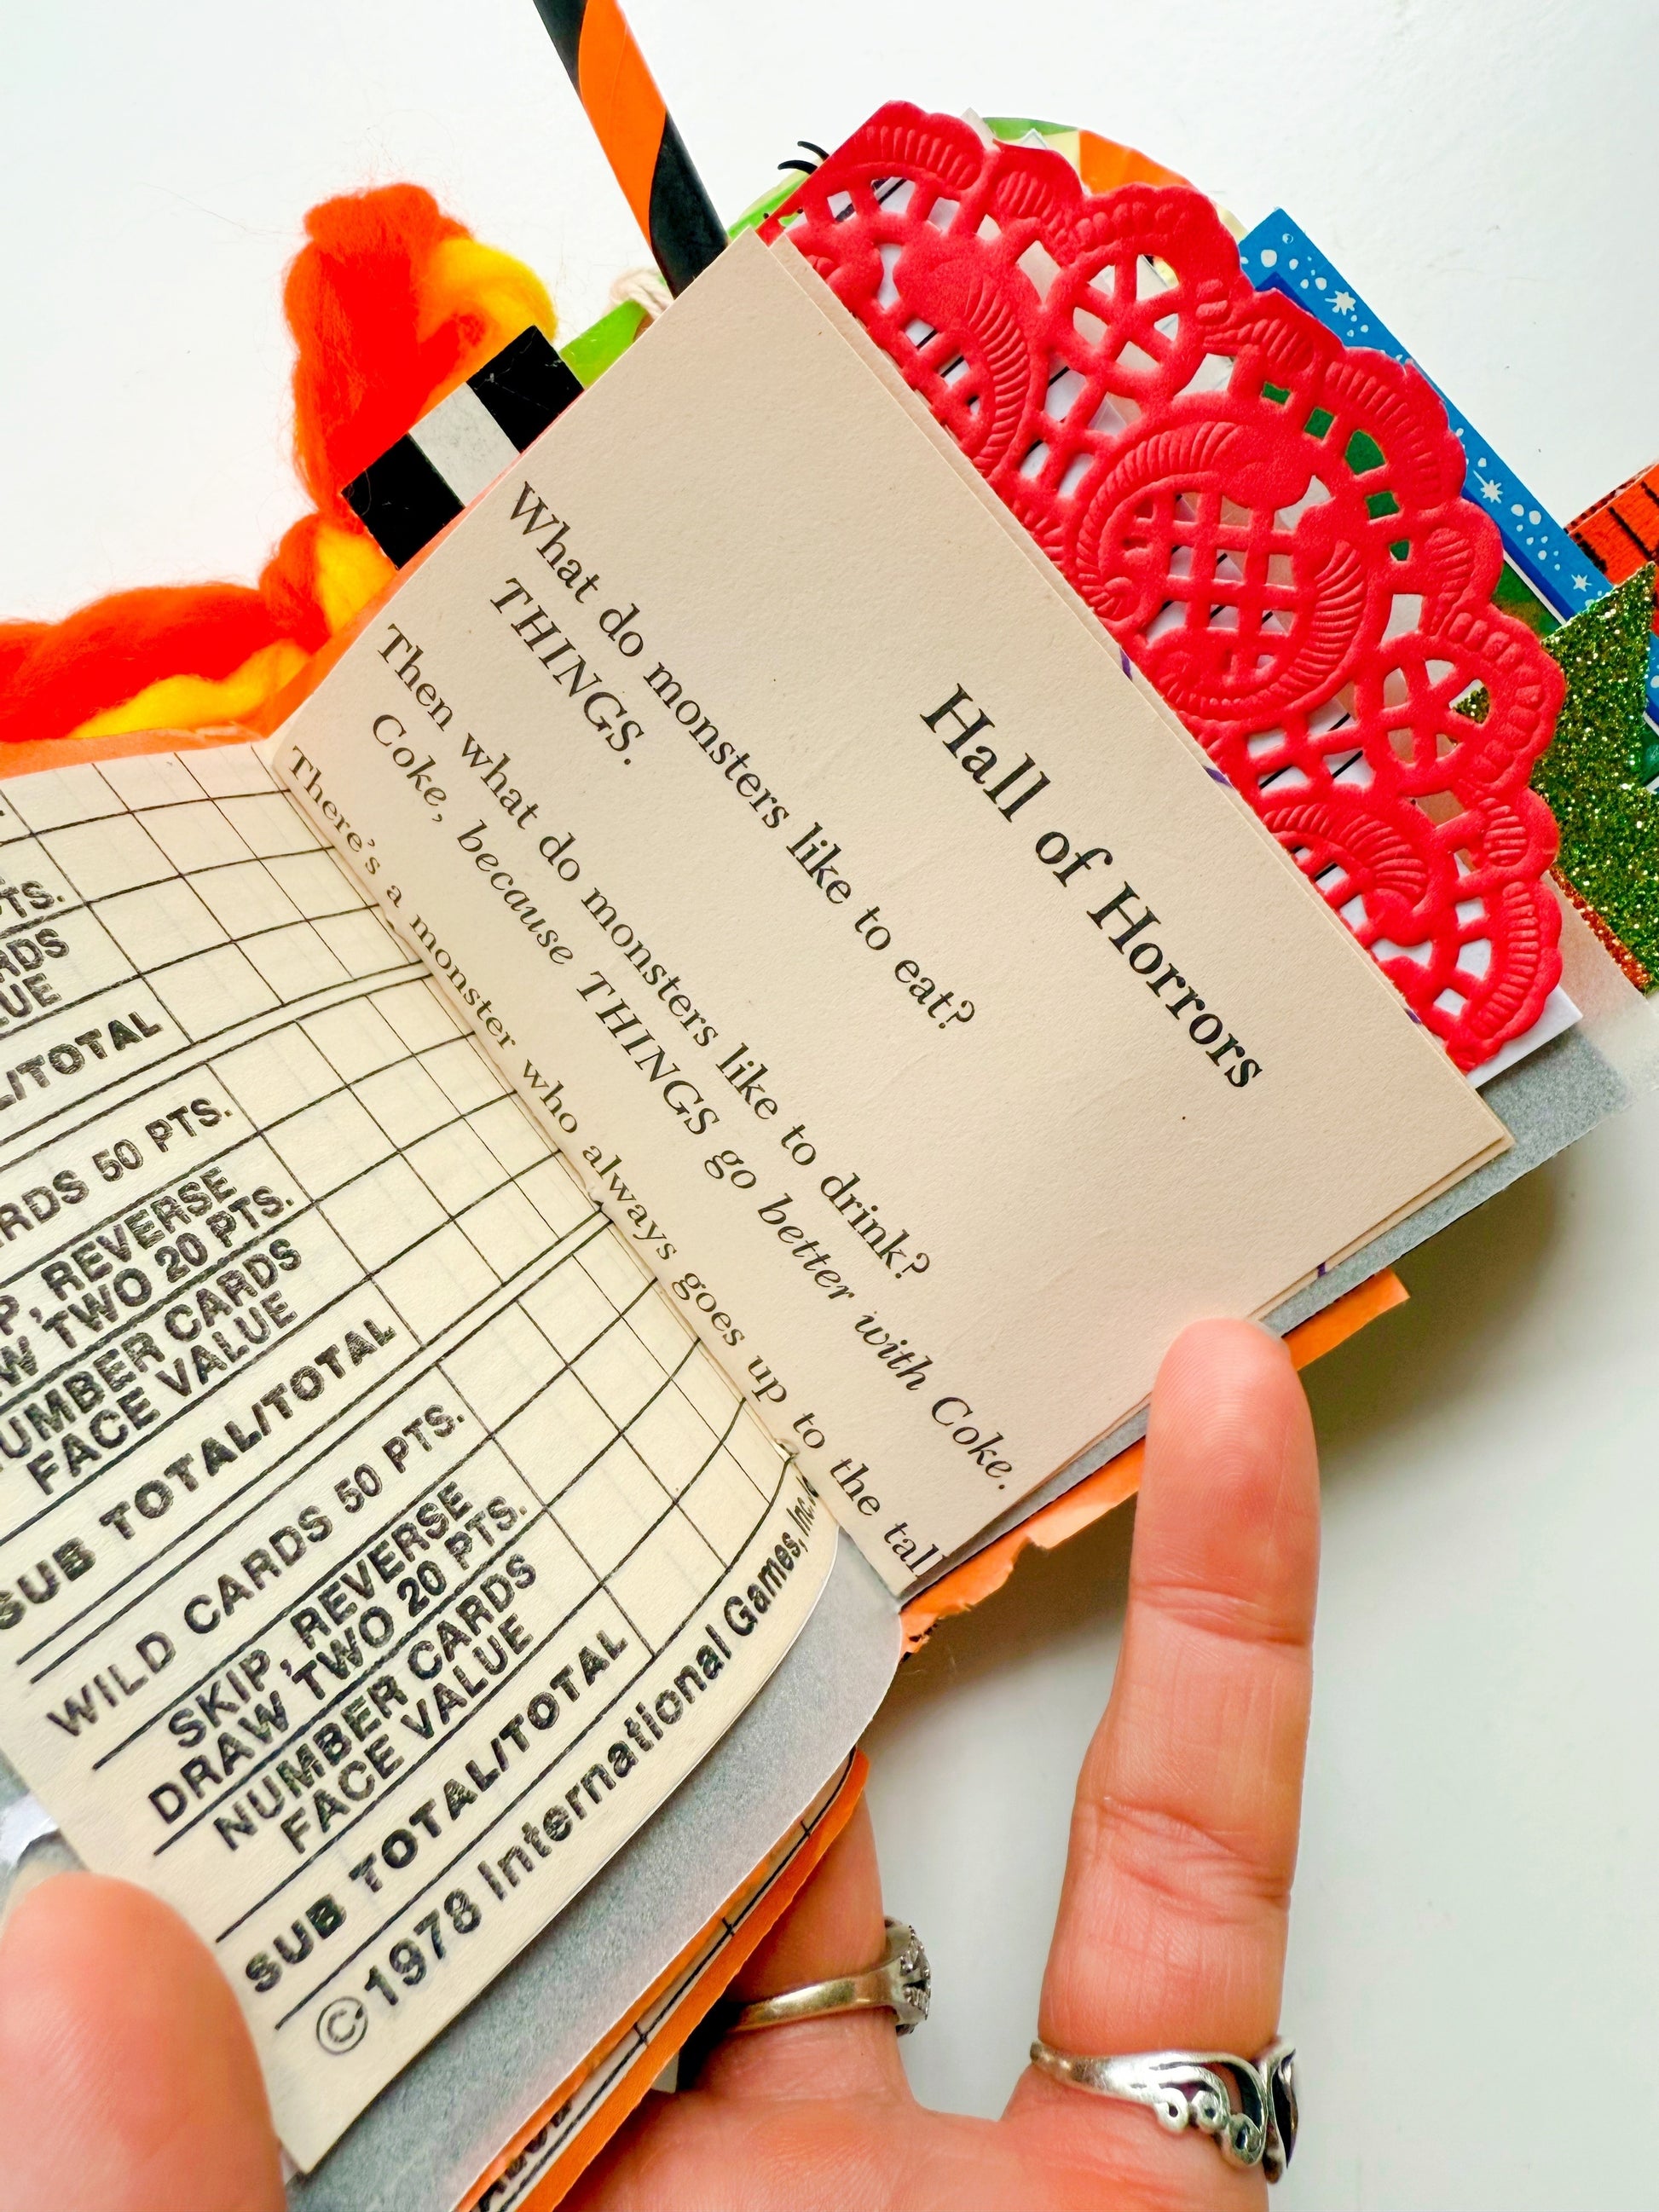 Hall of Horrors
What do monsters like to eat?
THINGS.
Then what do monsters like to drink?
Coke, because THINGS go better with Coke.
There's a monster who always goes up to the tall
TOTAL
50 PTS.
REVERSE
TWO 20 PTS.
CARDS
FACE VALUE
SUB TOTAL/TOTAL
WILD CARDS 50 PTS.
SKIP, REVERSE
DRAW TWO 20 PTS.
NUMBER CARDS
FACE VALUE
SUB TOTAL/TOTAL
©1978 International Games, Inc.